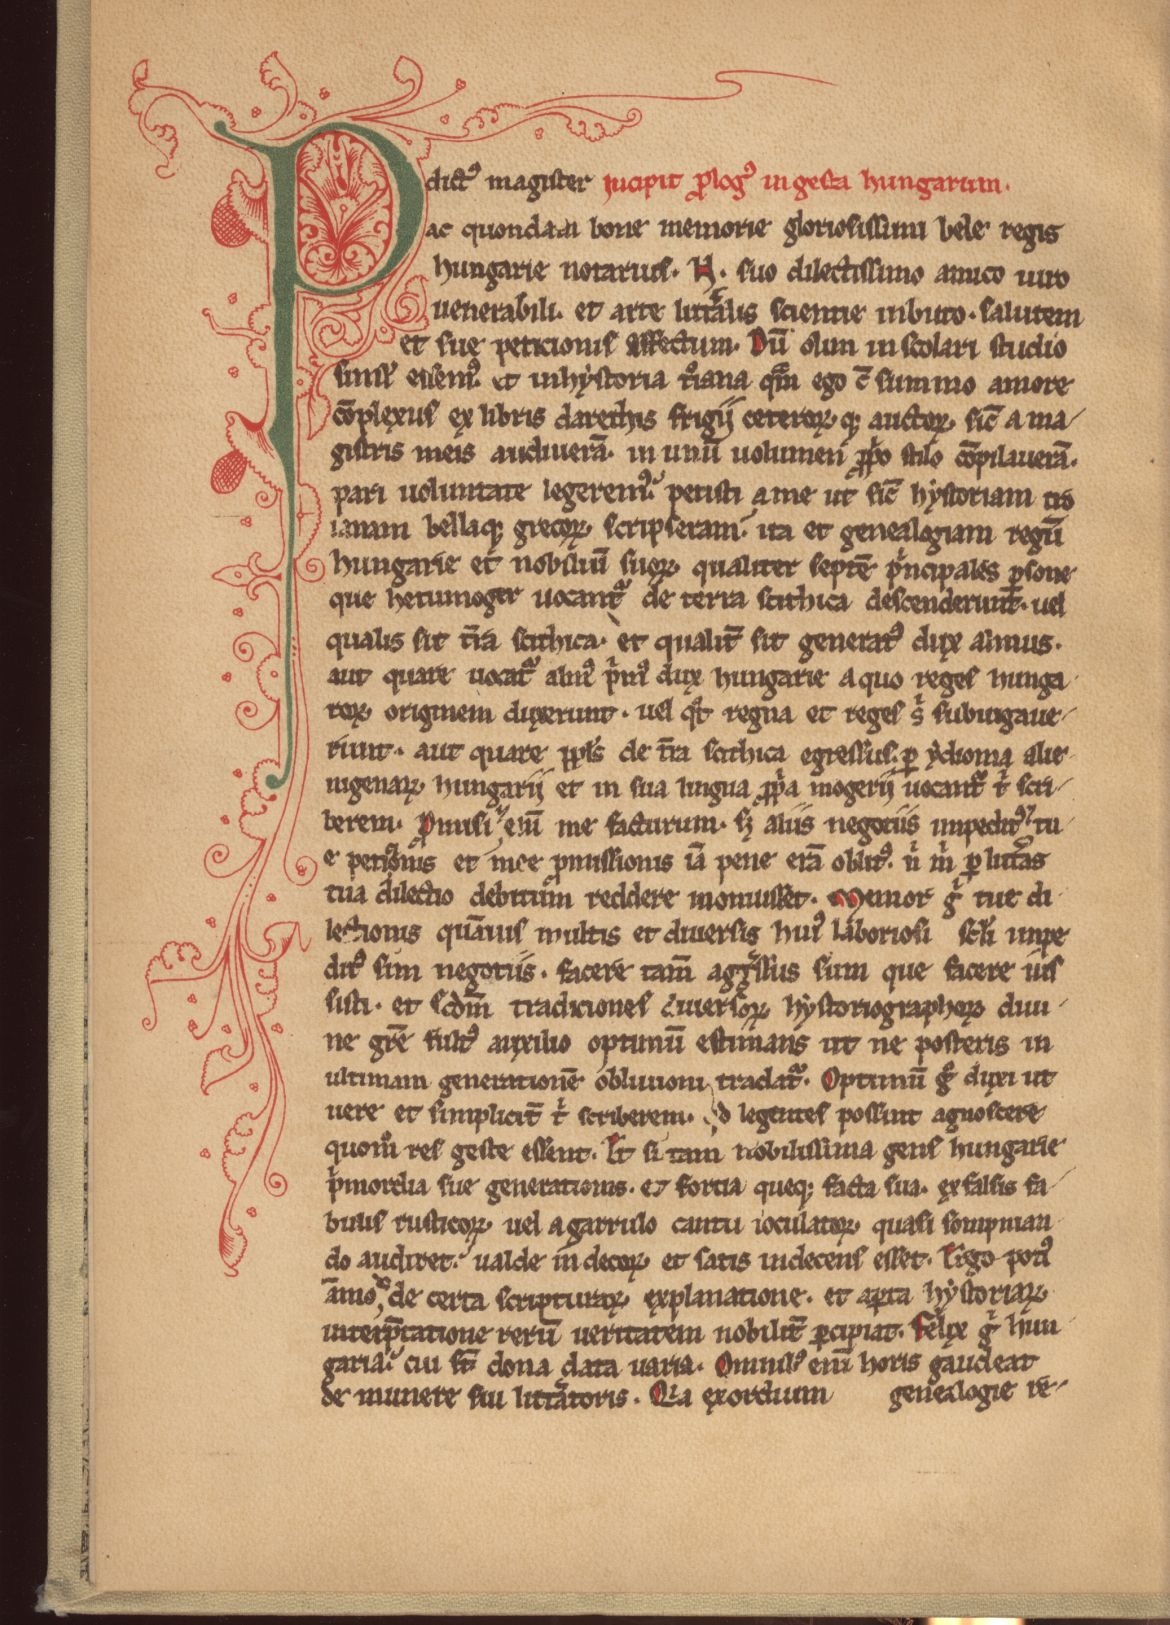 P dict⁹ magister Incipit p̄log⁹ in gesta hungarum.
ac quondam bone memorie gloriosissimi bele regis
hungarie notarius. N. suo dilectissimo amico uiro
uenerabili. et arte litťalis scientie inbuto. salutem
et sue peticionis affectum. Dū olim in scolari studio
simul essem⁹. et in hystoria t̉iana qm̄ ego c̄ summo amore
cōplexus ex libris darethis frigij ceteroꝝ q; auctoꝝ. sic̄ a ma/
gistris meis audiuerā. in unū uolumen ꝓp̉o stilo cōpilauerā.
pari uoluntate legerem⁹. petisti a me ut sic̄ hystoriam tro
ianam bellaq; grecoꝝ scripseram. ita et genealogiam regū
hungarie et nobiliū suoꝝ. qualiter septē p̉ncipales ꝑsone
que hetumoger uocant̉ de terra scithica descenderunt̄. uel
qualis sit t̄ra scithica. et qualit̄ sit generat⁹ dux almus.
aut quare uocat̉ alm⁹ p̉m⁹ dux hungarie a quo reges hunga
roꝝ originem duxerunt. uel qt̉ regna et reges s̉ subiugaue/
runt. aut quare ppl̓s de t̄ra scithica egressus. ꝑ ydioma alie/
nigenaꝝ hungarij et in sua lingua ꝓp̉a mogerij uocant̉ t̉ scri/
berem. Promisi eni̅ me facturum. sꝫ aliis negotiis impedit⁹. tu
e peticionis et mee promissionis iā pene erā oblit⁹. n̉ m̉ ꝑ litťas
tua dilectio debitum reddere monuisset. Memor g̉ tue di
lectionis quāuis multis et diuersis hui⁹ laboriosi scl̓i impe
dit⁹ sim negotiis. facere tam̄ aggressus sum que facere ius
sisti. et scd̄m tradiciones diuersoꝝ hystoriographoꝝ diui/
ne grē fult⁹ auxilio optimū estimans ut ne posteris in
ultimam generationē obliuioni tradat̉. Optimū g̉ duxi ut
uere et simplicit̄ t̉ scriberem. qd legentes possint agnoscere
quom̉ res geste essent. Et si tam nobilissima gens hungarie
p̉mordia sue generationis. et fortia queq; facta sua. ex falsis fa/
bulis rusticoꝝ. uel a garrulo cantu ioculatoꝝ. quasi sompnian
do audiret. ualde indecoꝝ et satis indecens esset. Ergo poti⁹
āmo de certa scripturaꝝ explanatione. et aꝑta hystoriaꝝ
interp̄tatione rerū ueritatem nobilit̄ ꝑcipiat. Felix g̉ hun/
garia. cui st̄ dona data uaria. Omnib⁹ eni̅ horis gaudeat
de munere sui litťatoris. Quia exordium genealogie re/